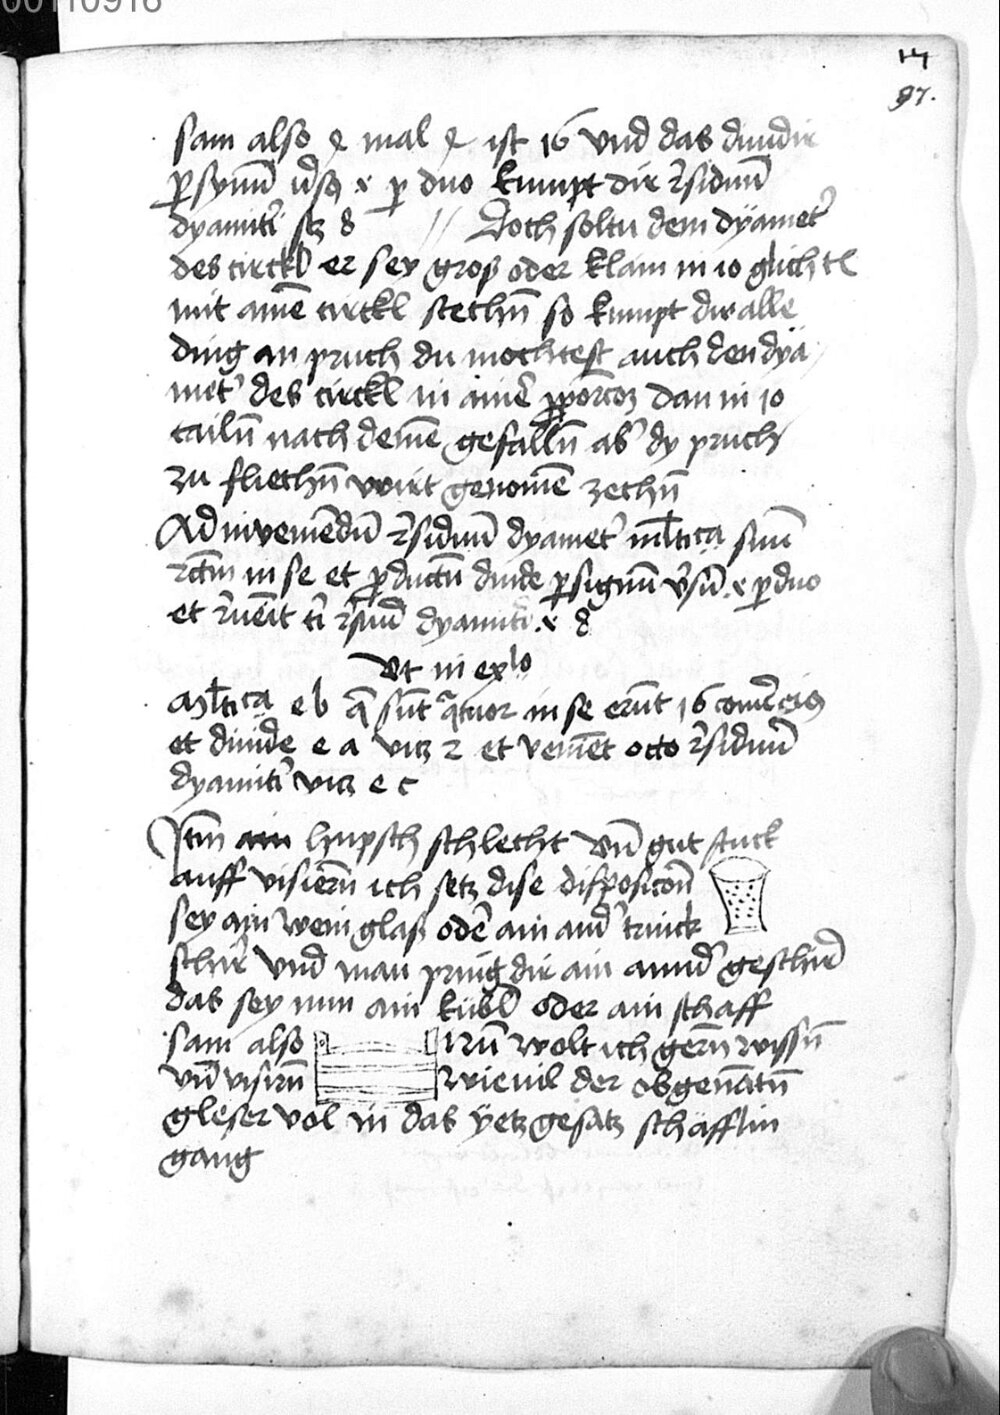 00110918
17
97.
sam also 4 mal 4 ist 16 vnd das diuidir
p̱ synum v̉sū .r. p̱ duo kumpt dir r̉siduum
dyamitˀ sc 8 // Doch soltu dem dyametˀ
des circkl er sey gros oder klain in 10 glich tl
mit aimē circkl stechn̄ so kumpt dir alle
ding an pruch du mochtest auch den dya
metˀ des circkl in ainˀ ꝓporcoz dan in 10
tailn̄ nach deinē gefalln̄ abˀ dy pruch
zu fliechn̄ wirt genomē zechn̄
Ad inveniendū r̉siduum dyametˀ ml̄tica sinū
rctm̄ in se et ꝓductū diuide p̱ signū v̉sū .r. p̱ duo
et r̉uēit tī r̉siduū dyamitˀ .r. 8
Vt in exlo
Ml̄tica e b q̄ sūt qͣtuor in se erūt 16
et diuide e a vitz 2 et veniēt octo r̉siduū
dyamitˀ vitz e c
Itm̄ ain hupsch schlecht vn̄ gut stuck
auff visiern̄ ich setz dise disposicōn
sey ain wein glaß odˀ ain andˀ trinck
schirˀ vnd man pring dir ain anndˀ geschirˀ
das sey nun ain kubl oder ain schaff
sam also Nū wolt ich gern̄ wissn̄
vn̄ visirn̄ wieuil der obgenātn̄
gleser vol in das yetz gesatz schäfflin
gang